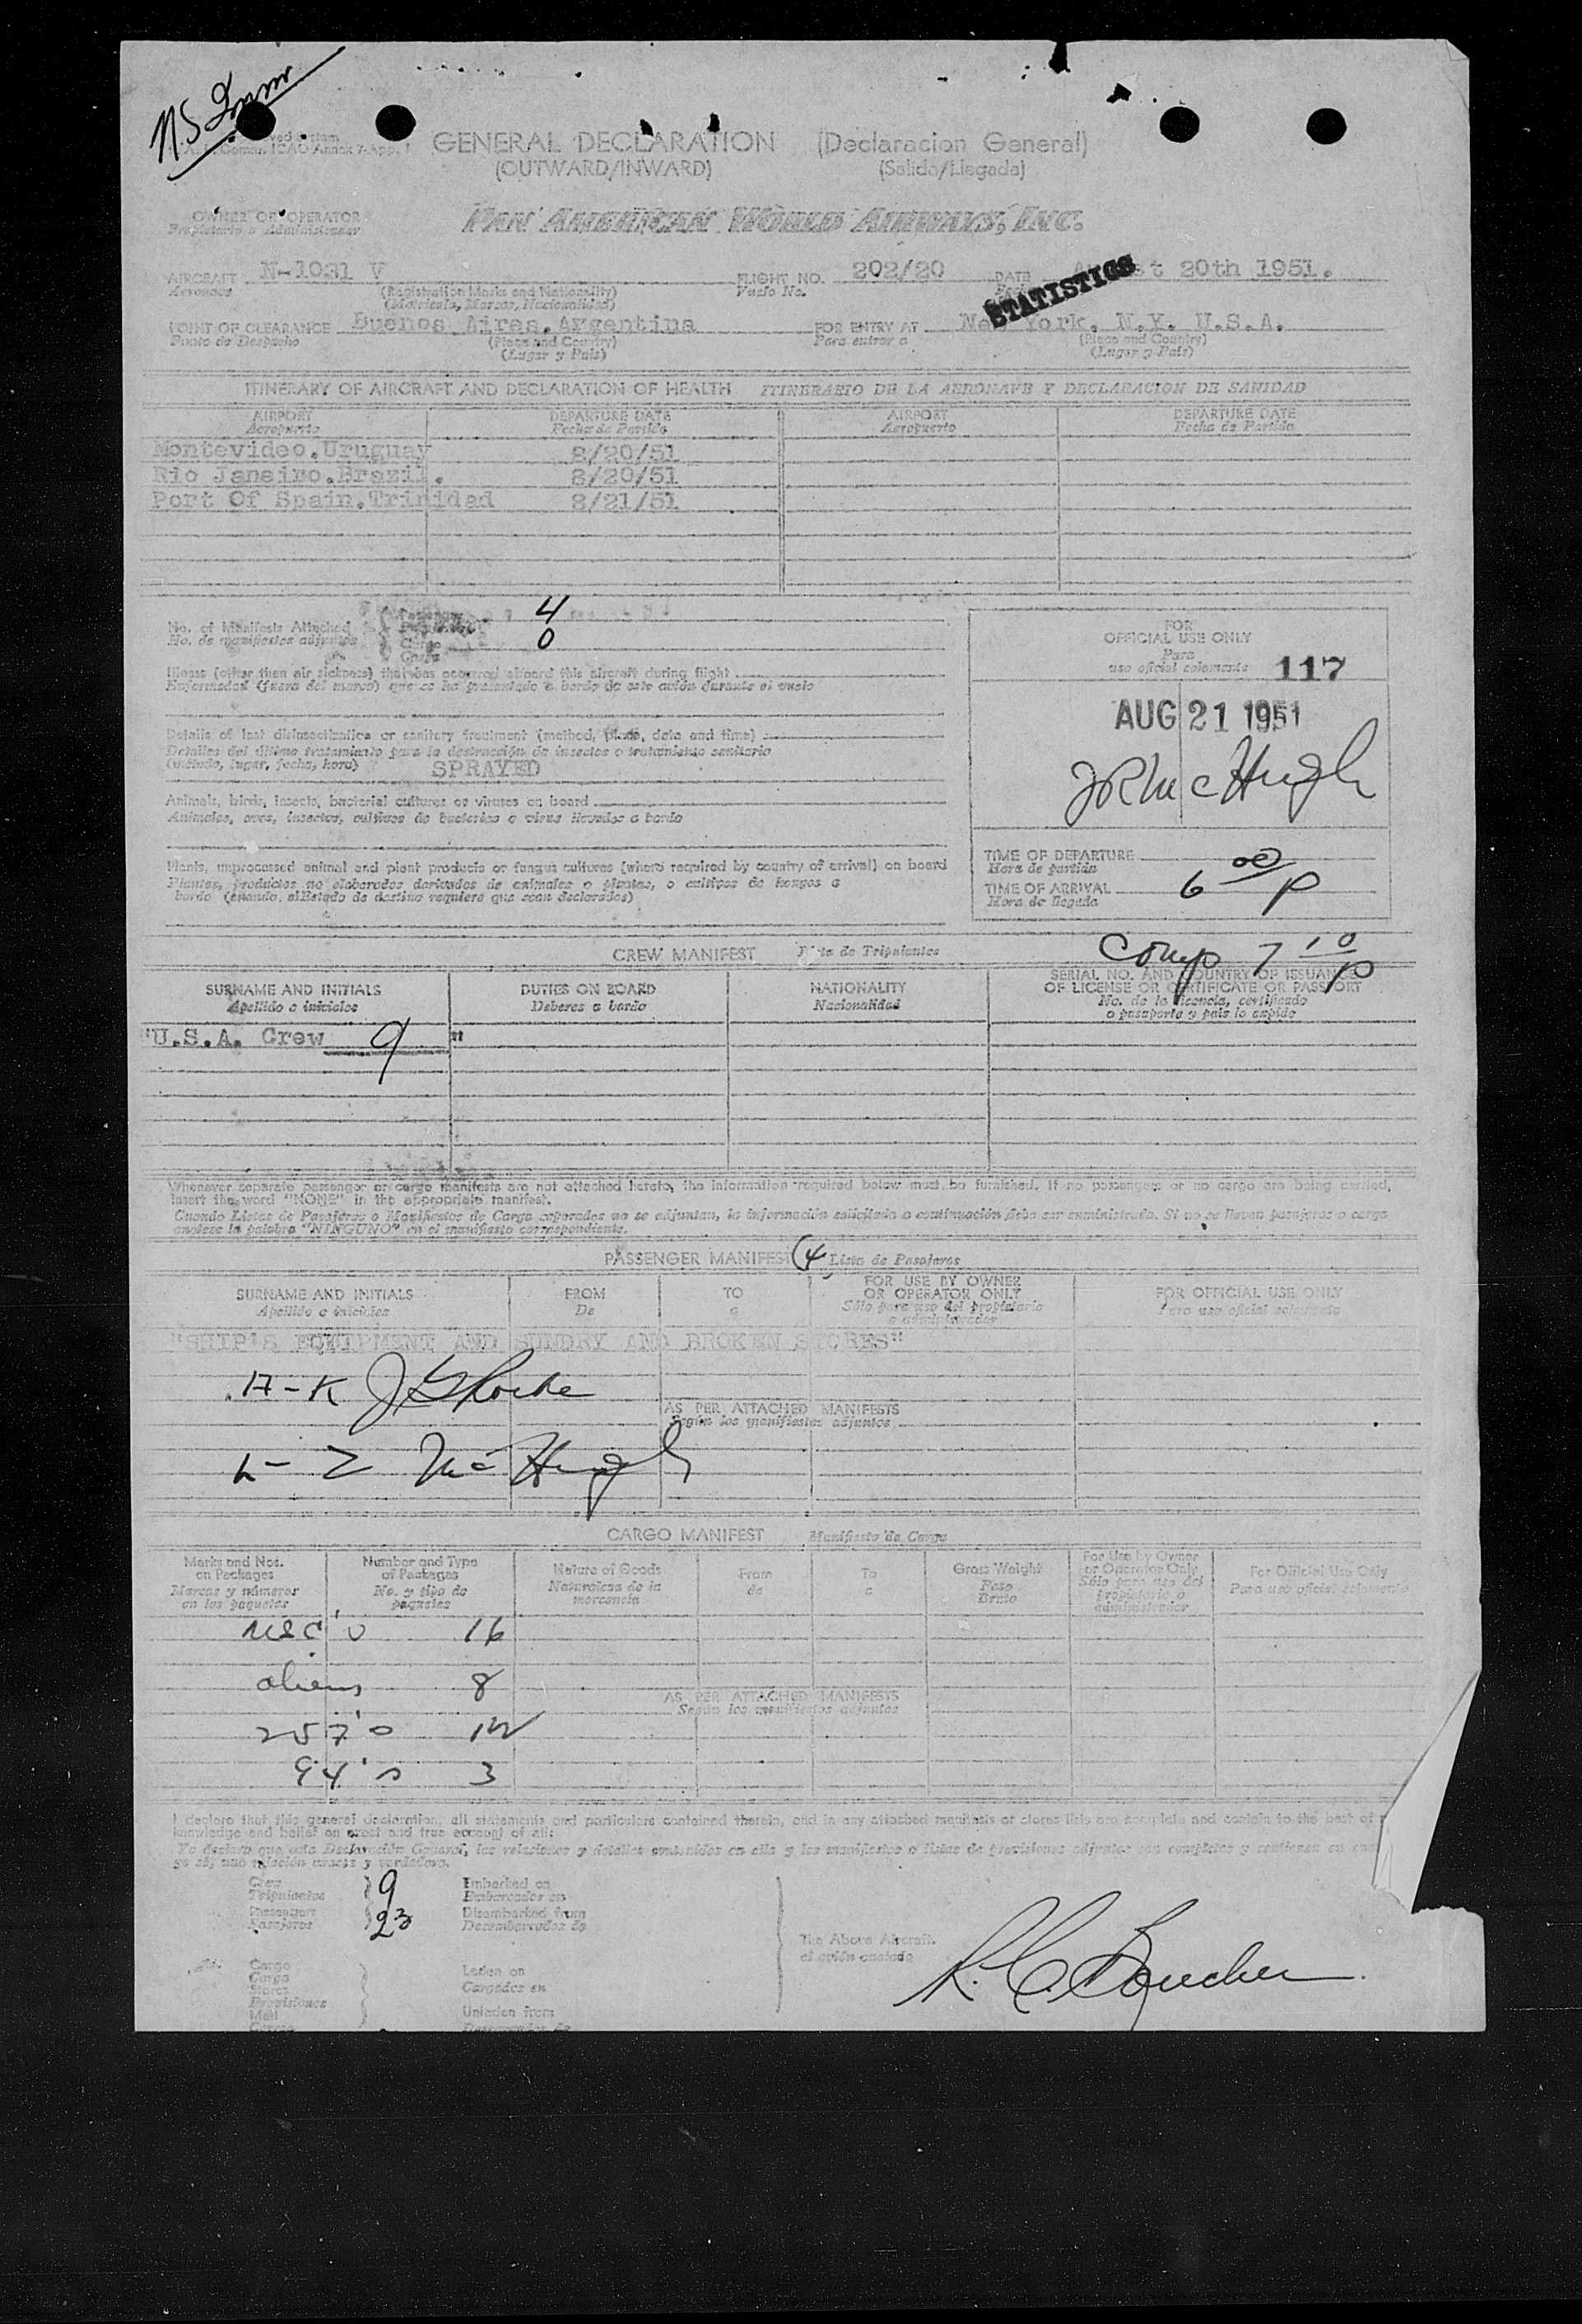 GENERAL DECLARATION (Declaracion General)
(OUTWARD/INWARD) (Salida/Llegada)
OWNER OR OPERATOR PAN AMERICAN WORLD AIRWAYS, INC.
Propietario o Administrador
AIRCRAFT N-1031 V FLIGHT NO. 202/20 DATE August 20th 1951.
Aeronave (Registration Marks and Nationality) Vuelo No.
(Matricula, Marcas, Nacionalidad)
STATISTICS
POINT OF CLEARANCE Buenos Aires.Argentina FOR ENTRY AT New York, N.Y. U.S.A.
Punto de Despacho (Place and Country) Para entrar a (Place and Country)
(Lugar y Pais) (Lugar y Pais)
ITINERARY OF AIRCRAFT AND DECLARATION OF HEALTH ITINERARIO DE LA AERONAVE Y DECLARACION DE SANIDAD
AIRPORT DEPARTURE DATE AIRPORT DEPARTURE DATE
Aeropuerto Fecha de Partida Aeropuerto Fecha de Partida
Montevideo.Uruguay 8/20/51
Rio Janeiro.Brazil. 8/20/51
Port Of Spain.Trinidad 8/21/51
No. of Manifests Attached 4
No. de manifiestos adjuntos Cargo 0
Illness (other than air sickness) that has occurred aboard this aircraft during flight
Enfermedad (fuera del mareo) que se ha presentado a bordo de este avión durante el vuelo
Details of last disinsectization or sanitary treatment (method, place, date and time)
Detalles del último tratamiento para la destrucción de insectos o tratamiento sanitario
(método, lugar, fecha, hora) SPRAYED
Animals, birds, insects, bacterial cultures or viruses on board
Animales, aves, insectos, cultivos de bacterias o virus llevados a bordo
Plants, unprocessed animal and plant products or fungus cultures (where required by country of arrival) on board
Plantas, productos no elaborados derivados de animales o plantas, o cultivos de hongos a
bordo (cuando el Estado de destino requiere que sean declarados)
FOR
OFFICIAL USE ONLY
Para
uso oficial solamente 117
AUG 21 1951
JR McHugh
TIME OF DEPARTURE
Hora de partida
TIME OF ARRIVAL 6 00 P
Hora de llegada
Comp 7 10 P
CREW MANIFEST Lista de Tripulantes
SURNAME AND INITIALS DUTIES ON BOARD NATIONALITY SERIAL NO. AND COUNTRY OF ISSUANCE OF LICENSE OR CERTIFICATE OR PASSPORT
Apellido e iniciales Deberes a bordo Nacionalidad No. de la licencia, certificado
o pasaporte y pais lo expide
"U.S.A. Crew 9 "
Whenever separate passenger or cargo manifests are not attached hereto, the information required below must be furnished. If no passengers or no cargo are being carried,
insert the word "NONE" in the appropriate manifest.
Cuando Listas de Pasajeros o Manifiestos de Carga separados no se adjuntan, la información solicitada a continuación debe ser suministrada. Si no se llevan pasajeros o carga
anótese la palabra "NINGUNO" en el manifiesto correspondiente.
PASSENGER MANIFEST (4 Lista de Pasajeros
SURNAME AND INITIALS FROM TO FOR USE BY OWNER OR OPERATOR ONLY FOR OFFICIAL USE ONLY
Apellido e iniciales De a Sólo para uso del propietario o administrador Para uso oficial solamente
"SHIP'S EQUIPMENT AND SUNDRY AND BROKEN STORES"
A-K
AS PER ATTACHED MANIFESTS
Según los manifiestos adjuntos
L-Z McHugh
CARGO MANIFEST Manifiesto de Carga
Marks and Nos. on Packages Number and Type of Packages Nature of Goods From To Gross Weight For Use by Owner or Operator Only For Official Use Only
Marcas y números en los paquetes No. y tipo de paquetes Naturaleza de la mercancía de a Peso Bruto Sólo para uso del propietario o administrador Para uso oficial solamente
USC's 16
aliens 8
AS PER ATTACHED MANIFESTS
Según los manifiestos adjuntos
257's
94's 3
I declare that this general declaration, all statements and particulars contained therein, and in any attached manifests or stores lists are complete and contain to the best of
knowledge and belief an exact and true account of all:
Yo declaro que esta Declaración General, las relaciones y detalles contenidos en ella y los manifiestos o listas de provisiones adjuntos son completos y contienen en
Crew 9 Embarked on
Tripulantes Embarcados en
Passengers 23 Disembarked from
Pasajeros Desembarcados de
The Above Aircraft.
el avión anotado
Cargo Laden on
Carga Cargados en
Stores
Provisiones
Mail Unladen from
R. C. Boucher